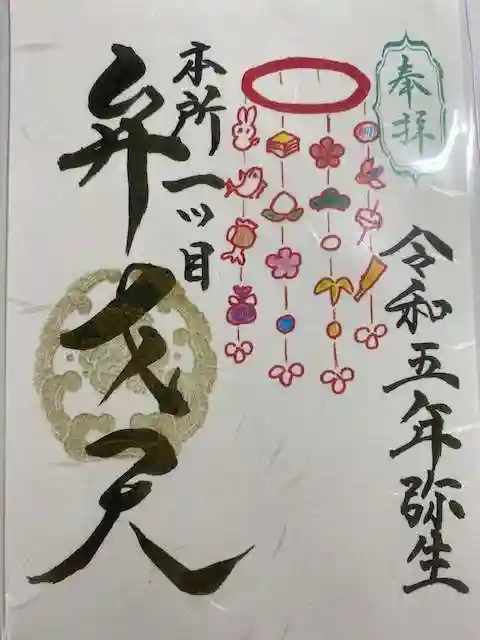 奉拝
令和五年弥生
本所一ツ目
弁才天